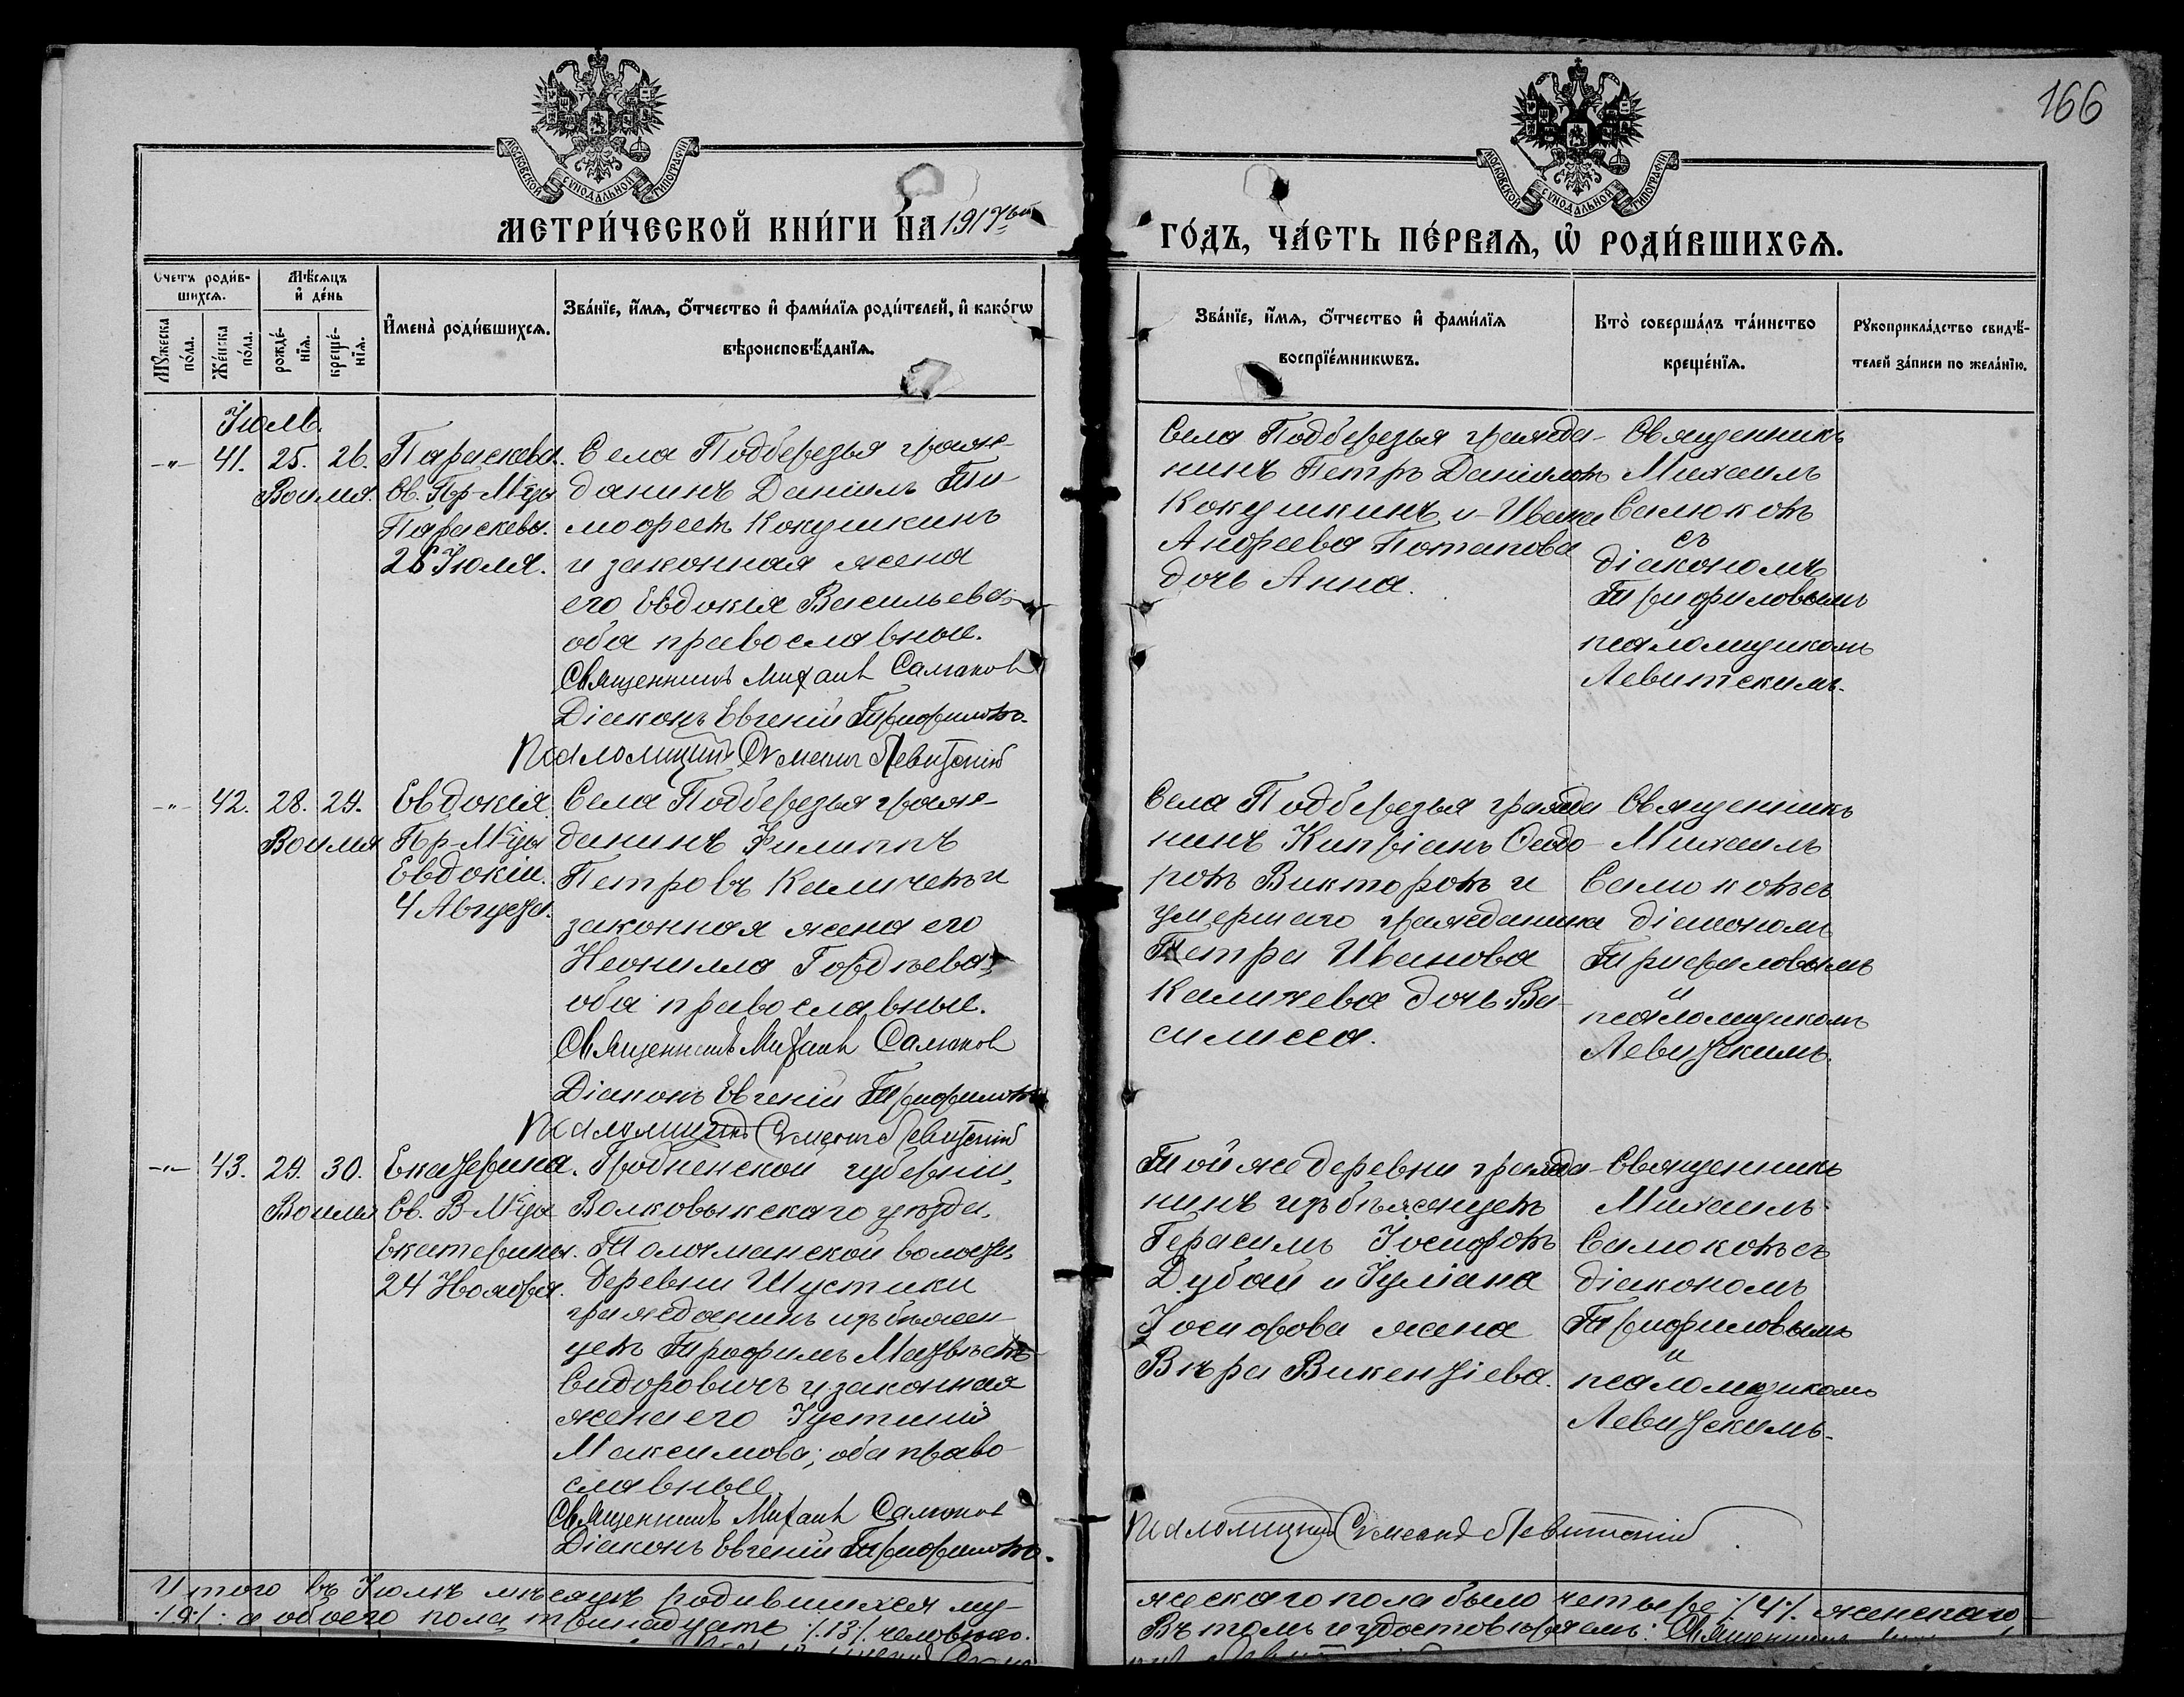 166
МОСКОВСКОЙ СѴНОДАЛЬНОЙ ТИПОГРАФІИ
МОСКОВСКОЙ СѴНОДАЛЬНОЙ ТИПОГРАФІИ
МЕТРИ́ЧЕСКОЙ КНИ́ГИ НА 1917ый
ГО́ДЪ, ЧА́СТЬ ПЕ́РВАѦ, Ѡ РОДИ́ВШИХСѦ.
Счетъ роди́в-
шихсѧ.
Мѣ́сѧцъ
и҆ де́нь
Мꙋжеска
по́ла.
Же́нска
по́ла.
рожде́-
нїѧ.
креще́-
нїѧ.
И҆мена̀ роди́вшихсѧ.
Зва́нїе, и҆́мѧ, ѻ҆́тчество и҆ фами́лїѧ роди́телей, и҆ како́гѡ
вѣроисповѣ́данїѧ.
Зва́нїе, и҆́мѧ, ѻ҆́тчество и҆ фами́лїѧ
воспрїе́мникѡвъ.
Кто̀ соверша́лъ та́инство
креще́нїѧ.
Рꙋкоприкла́дство свидѣ́-
телей за́писи по жела́нїю.
Іюль.
-"- 41. 25. 26. Параскева.
Воимя Св. Пр-М-цы
Параскевы.
26 Іюля.
Села Подберезья граж-
данинъ Даніилъ Ти-
мофеевъ Кокушкинъ
и законная жена
его Евдокія Васильева,
оба православные.
Священникъ Михаил Самоков
Діаконъ Евгеній Трифиловъ.
Псаломщикъ Симеонъ Левитскій
Села Подберезья гражда-
нинъ Петръ Даниловъ
Кокушкинъ и Ивана
Андреева Потапова
дочь Анна.
Священникъ
Михаилъ
Самоковъ
съ
діакономъ
Трифиловымъ
псаломщикомъ
Левитскимъ.
-"- 42. 28. 29. Евдокія.
Воимя Пр-М-цы
Евдокіи.
4 Августа.
Села Подберезья граж-
данинъ Филиппъ
Петровъ Каличевъ и
законная жена его
Неонилла Гордѣева,
оба православные.
Священникъ Михаил Самоков
Діаконъ Евгеній Трифиловъ
Псаломщикъ Симеонъ Левитскій
Села Подберезья гражда-
нинъ Кипріанъ Ѳедо-
ровъ Викторовъ и
умершаго гражданина
Петра Иванова
Каличева дочь Ва-
силисса.
Священникъ
Михаилъ
Самоковъ съ
діакономъ
Трифиловымъ
и
псаломщикомъ
Левитскимъ.
-"- 43. 29. 30. Екатерина.
Воимя Св. В-М-цы
Екатерины.
24 Ноября.
Гродненской губерніи,
Волковыскскаго уѣзда,
Толочманской волости,
деревни Шустики
гражданинъ изъ бѣжен-
цевъ Трофимъ Матвѣевъ
Сидоровичъ и законная
жена его Іустинія
Максимова; оба право-
славные.
Священникъ Михаил Самоков
Діаконъ Евгеній Трифиловъ.
Той же деревни гражда-
нинъ изъ бѣженцевъ
Герасимъ Іосифовъ
Дубай и Іуліана
Іосифова жена
Вѣра Викентіева.
Священникъ
Михаилъ
Самоковъ съ
діакономъ
Трифиловымъ
и
псаломщикомъ
Левитскимъ.
Псаломщикъ Симеонъ Левитскій
Итого въ Іюлѣ мѣсяцѣ родившихся му-
жескаго пола было четыре ./.4/. женскаго
./.9/. а обоего пола тринадцать ./.13/. человѣкъ.
Въ томъ и удостовѣряемъ: Священникъ